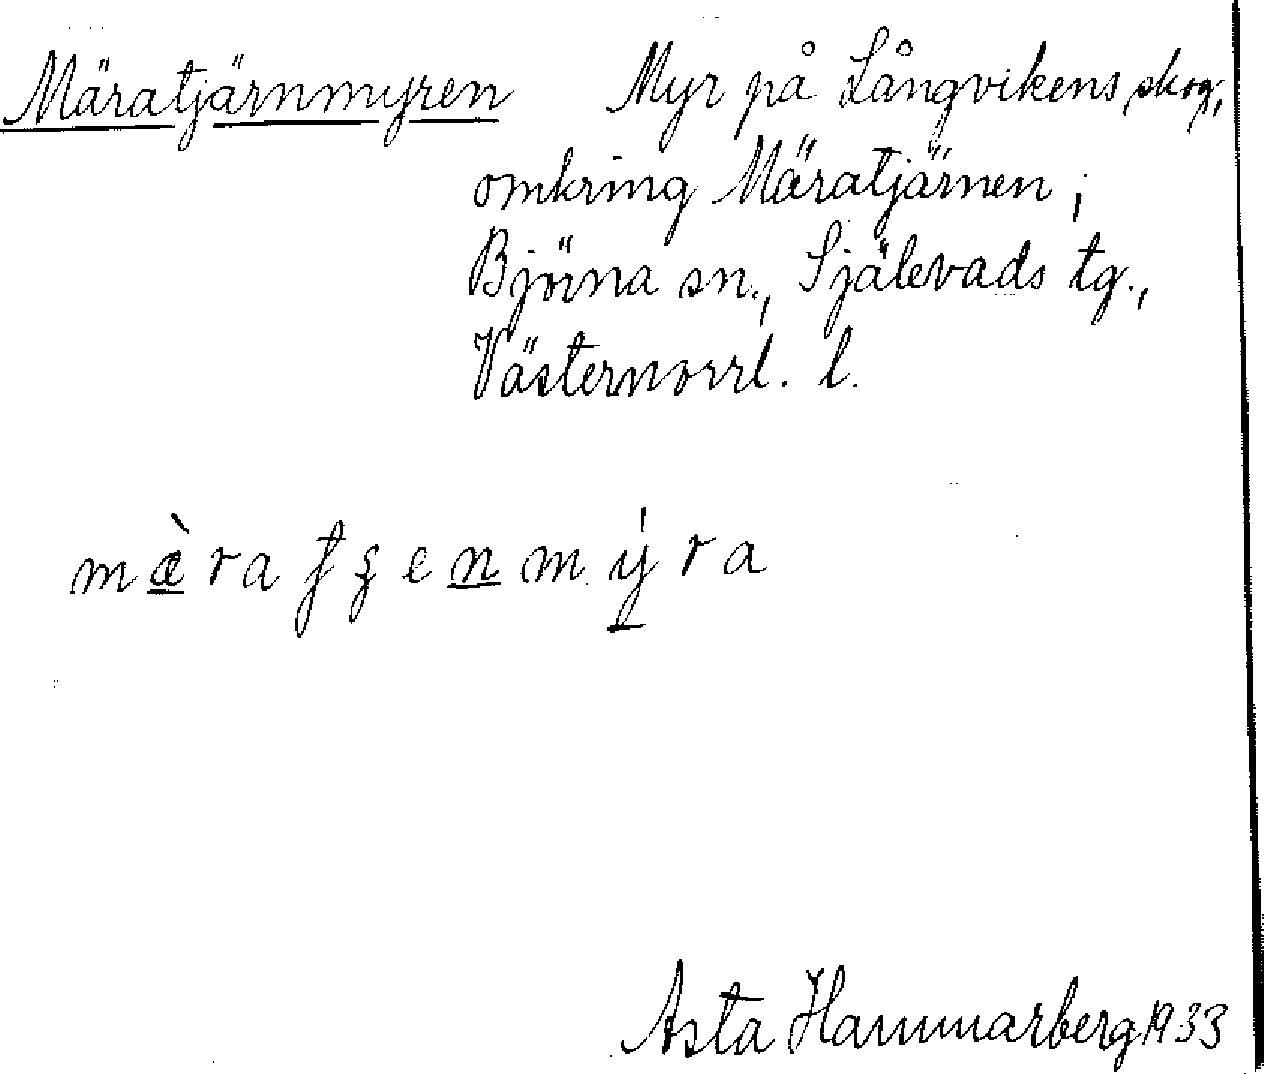 Märatjärnmyren Myr på Långvikens skog,
omkring Märatjärnen;
Björna sn., Själevads tg.,
Västernorrl. l.
Asta Hammarberg 1933